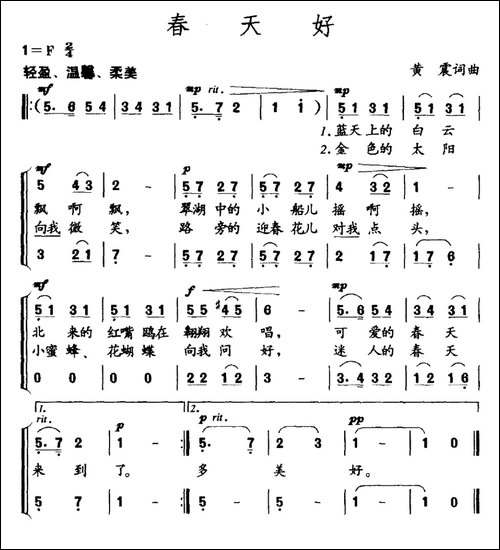 春天好
1=F 2/4
轻盈、温馨、柔美
黄震词曲
mf mp rit. mp
‖:(5. 6 5 4 | 3 4 3 1 | 5. 7 2 | 1 i) | 5 1 3 1 | 5 1 3 1 |
1.蓝天上的 白云
2.金色的 太阳
mf p mp
5 4 3 | 2 - | 5 7 2 7 | 5 7 2 7 | 4 3 2 | 1 - |
飘啊飘, 翠湖中的小船儿摇啊摇,
向我微笑, 路旁的迎春花儿对我点头,
3 2 1 | 7 - | 5 7 2 7 | 5 7 2 7 | 2 1 7 | 1 7 6 |
mf f mp
5 1 3 1 | 5 1 3 1 | 5 5 #4 5 | 6 - | 5. 6 5 4 | 3 4 3 1 |
北来的红嘴鸥在翱翔欢唱, 可爱的春天
小蜜蜂、花蝴蝶向我问好, 迷人的春天
0 0 | 0 0 | 2 2 1 2 | 2 - | 3. 4 3 2 | 1 2 1 6 |
1. 2.
rit. p rit. pp
5. 7 2 | 1 - :‖ 5. 7 | 2 3 | 1 - | 1 0 ‖
来到了。 多美好。
5 7 | 1 - :‖ 5 7 | 5 7 | 1 - | 1 0 ‖